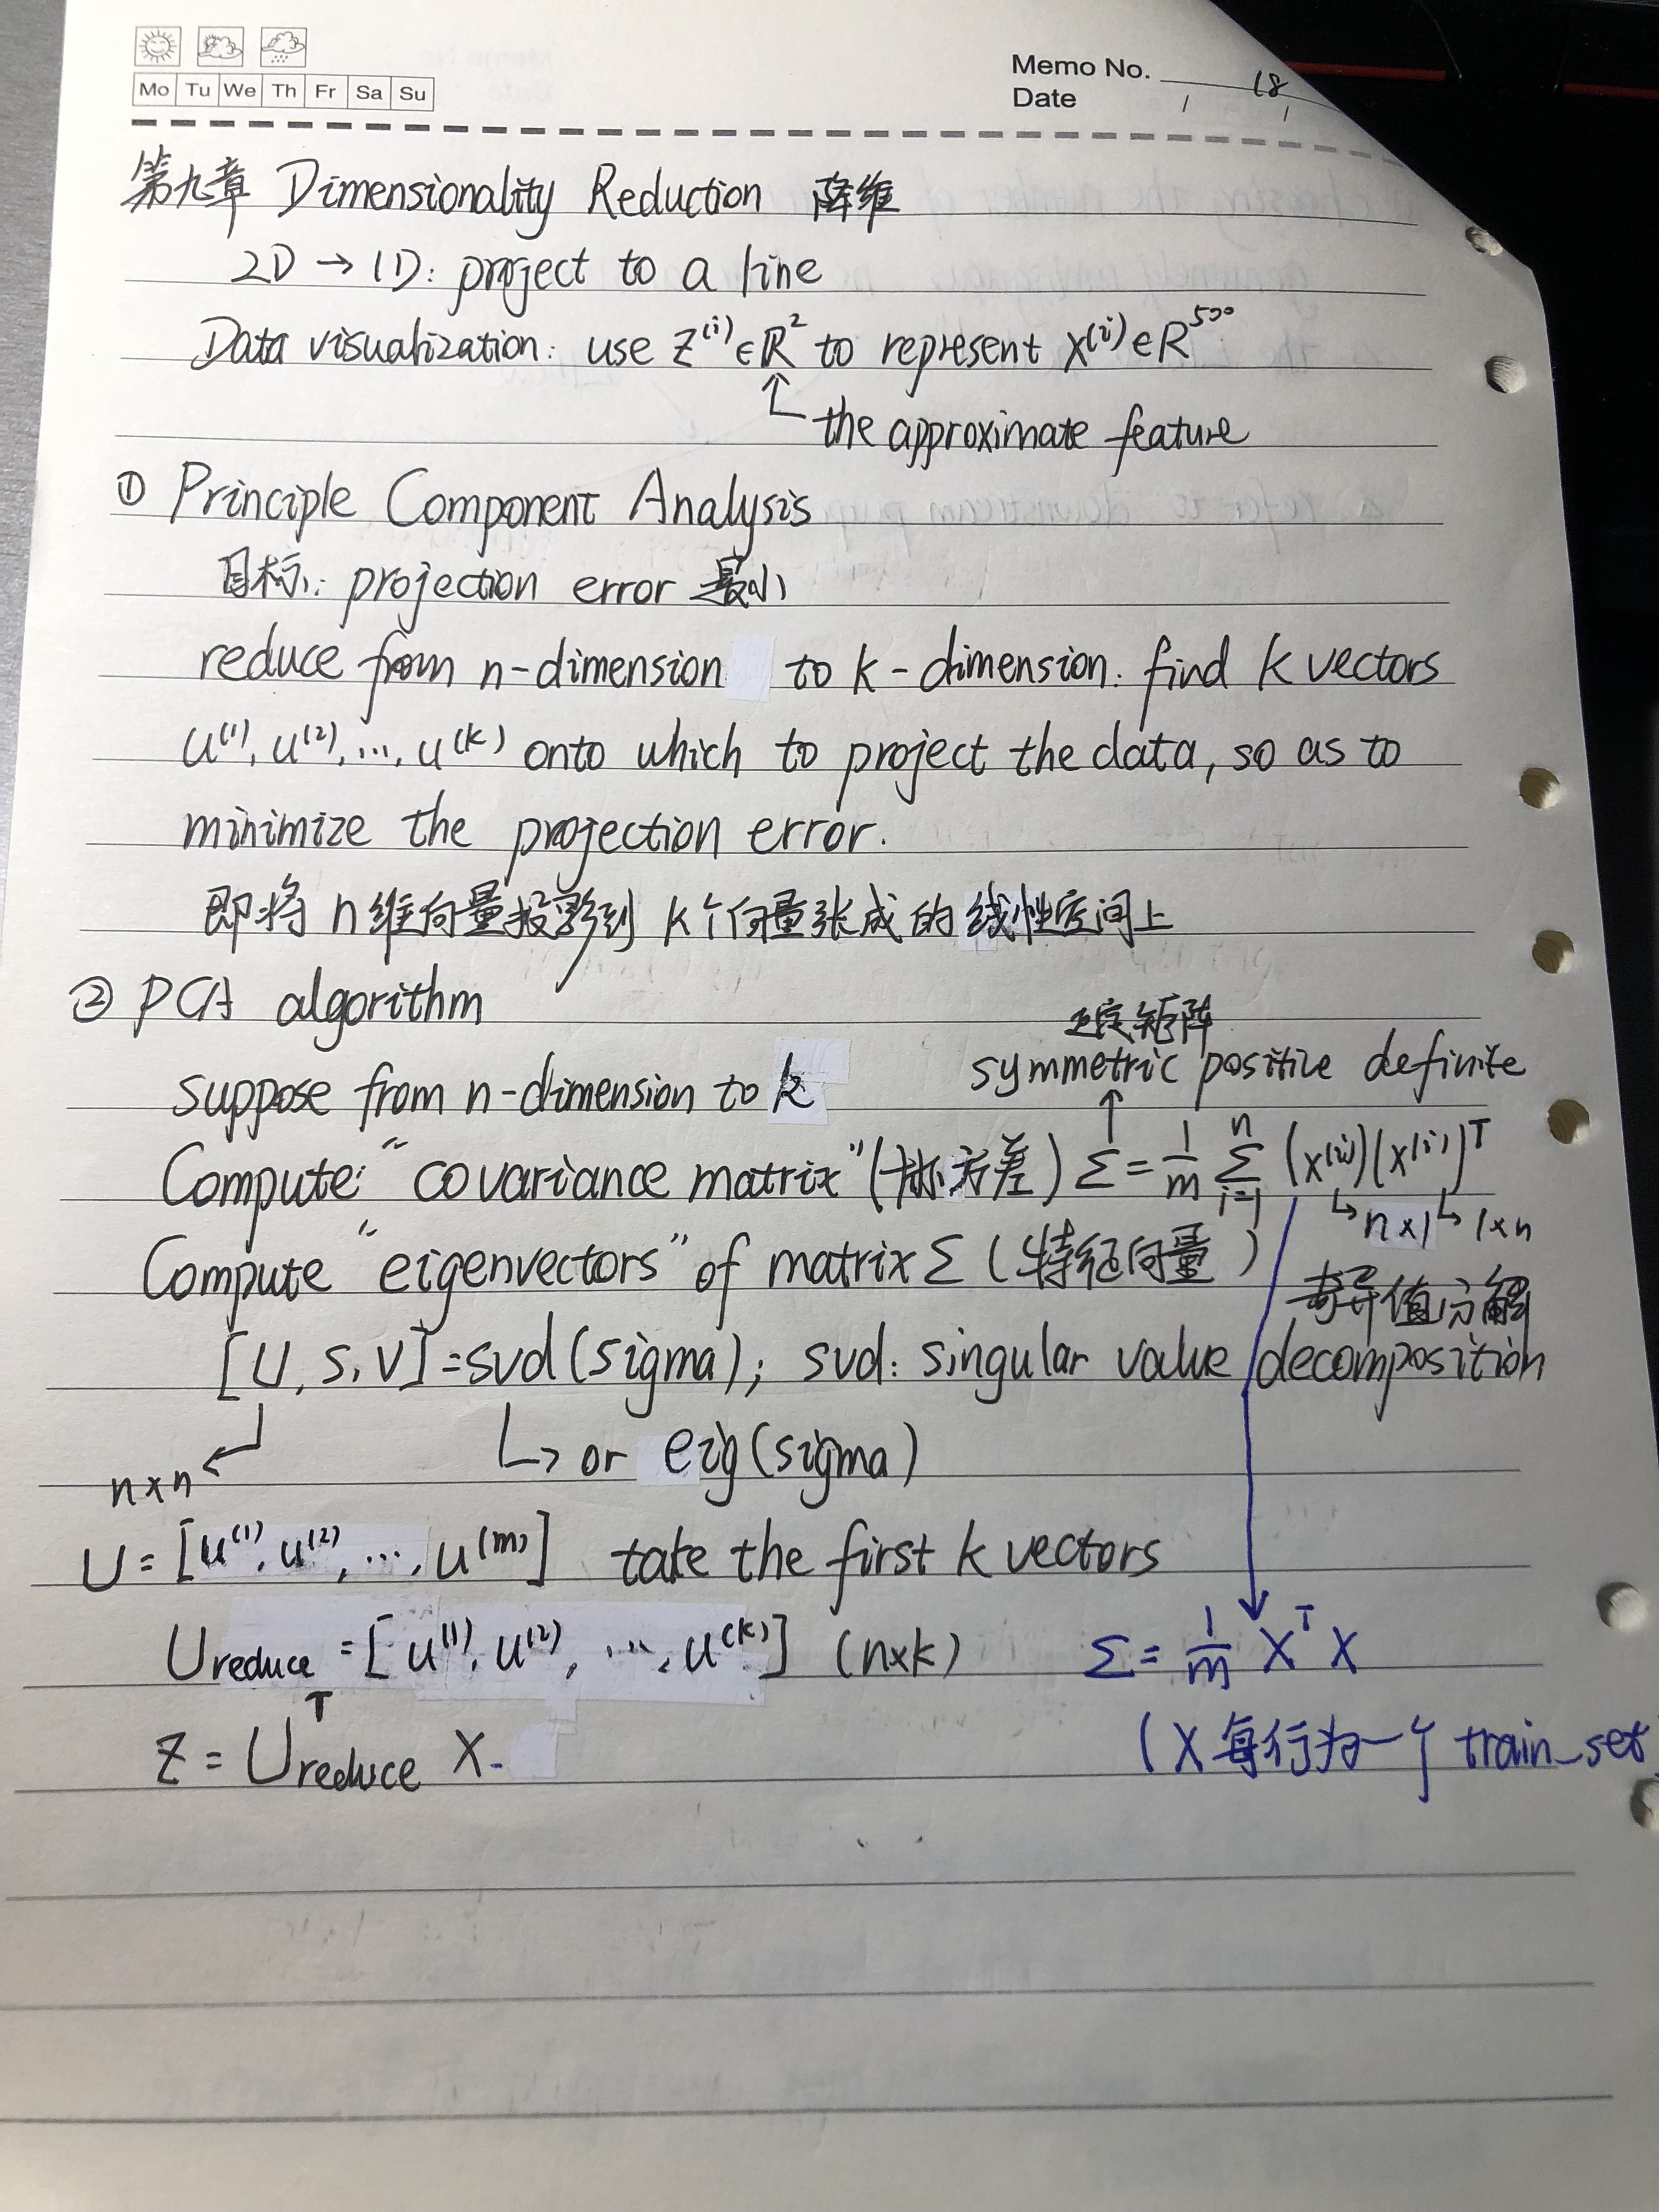 Mo Tu We Th Fr Sa Su
Memo No. 18
Date / /
第九章 Dimensionality Reduction 降维
2D → 1D: project to a line
Data visualization: use z⁽ⁱ⁾∈ℝ² to represent x⁽ⁱ⁾∈R⁵⁰⁰
↑ the approximate feature
① Principle Component Analysis
目标: projection error 最小
reduce from n-dimension to k-dimension. find k vectors
u⁽¹⁾, u⁽²⁾, ..., u⁽ᵏ⁾ onto which to project the data, so as to
minimize the projection error.
即将 n维向量投影到 k个向量张成的线性空间上
② PCA algorithm
正定矩阵
symmetric positive definite
suppose from n-dimension to k
↑
Compute: "covariance matrix" (协方差) Σ = 1/m Σᵢ₌₁ⁿ (x⁽ⁱ⁾)(x⁽ⁱ⁾)ᵀ
↳ n×1 ↳ 1×n
Compute "eigenvectors" of matrix Σ (特征向量)
奇异值分解
[U, S, V] = svd(sigma); svd: singular value decomposition
n×n ↳ or eig(sigma)
U = [u⁽¹⁾, u⁽²⁾, ..., u⁽ᵐ⁾] take the first k vectors
Ureduce = [u⁽¹⁾, u⁽²⁾, ..., u⁽ᵏ⁾] (n×k)
Σ = 1/m XᵀX
z = Ureduceᵀ X.
(X 每行为一个 train_set)